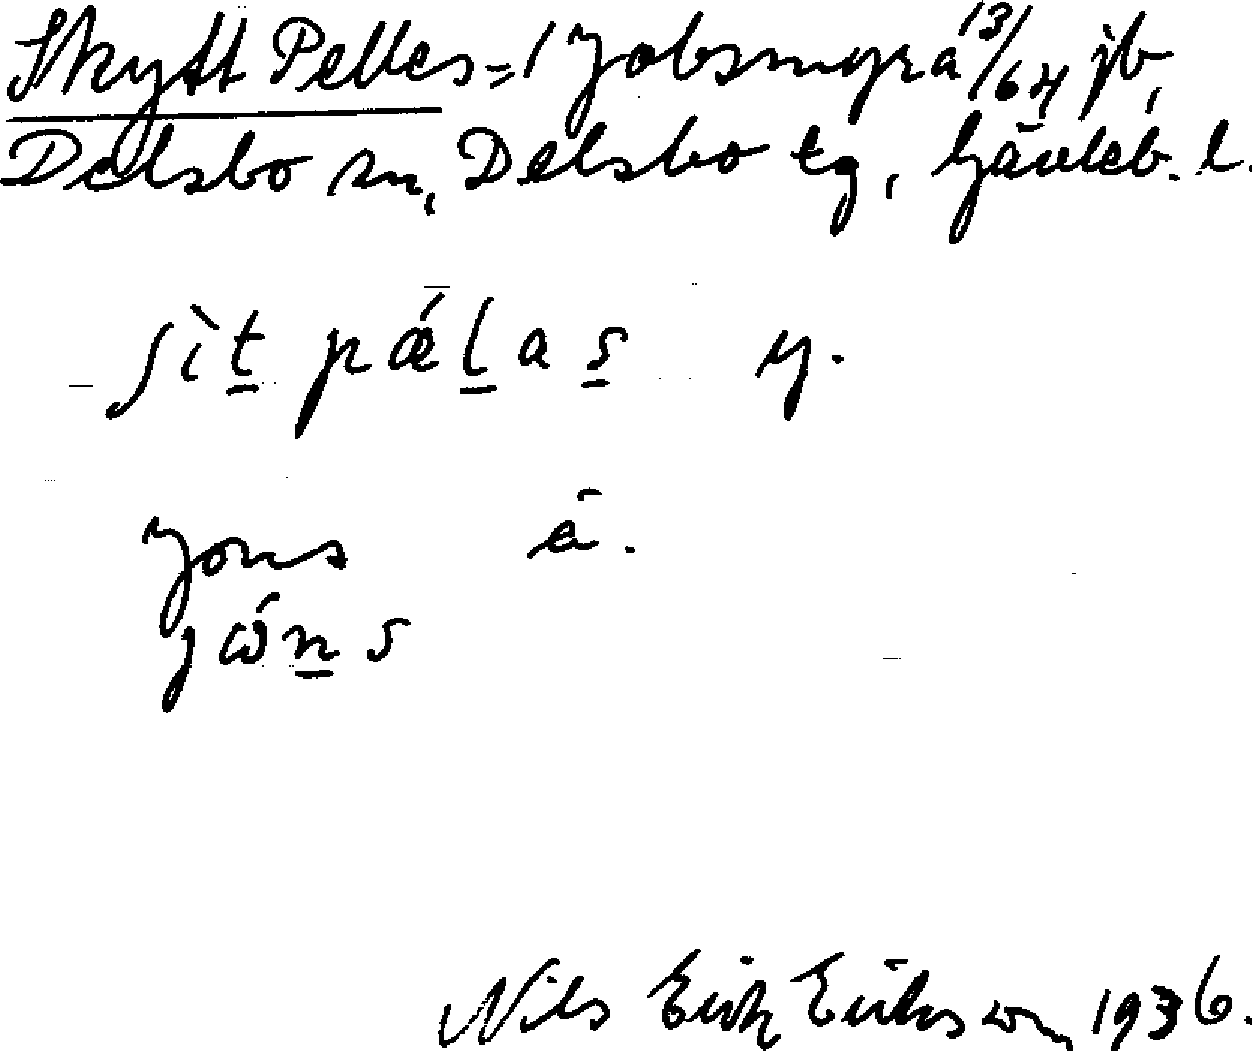 Skytt Pelles = 1 Jobsmyra 13/64 jb,
Delsbo sn, Delsbo tg, Gävleb. l.
ʃìt pǽlas y.
Jons ä.
jóns
Nils Erik Eriksson 1936.